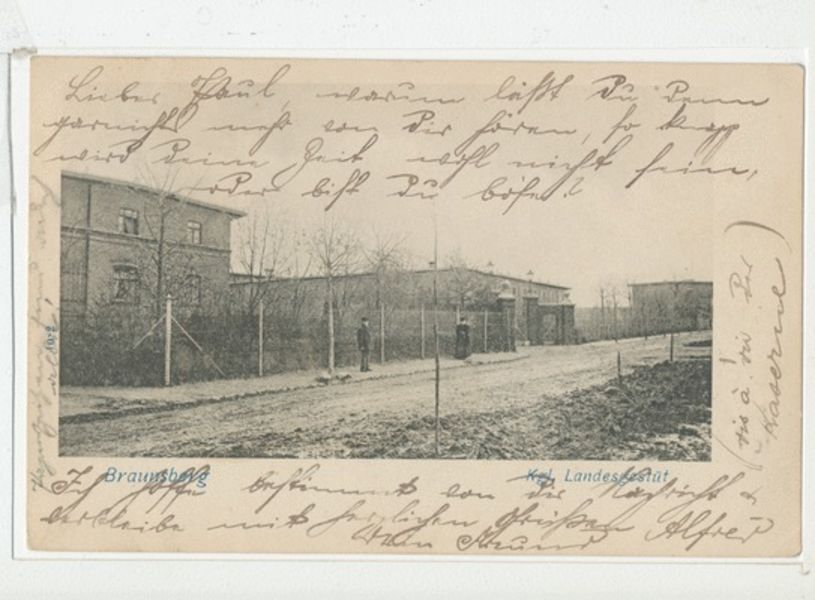 Lieber Paul, warum läßt Du denn
garnichts mehr von Dir hören, so knapp
wird deine Zeit wohl nicht sein,
oder bist Du böse?
(vis à vis der
Kaserne)
Braunsberg
Kgl. Landesgestüt
Ich hoffe bestimmt von dir Nachricht &
verbleibe mit herzlichen Grüßen
Dein Freund Alfred